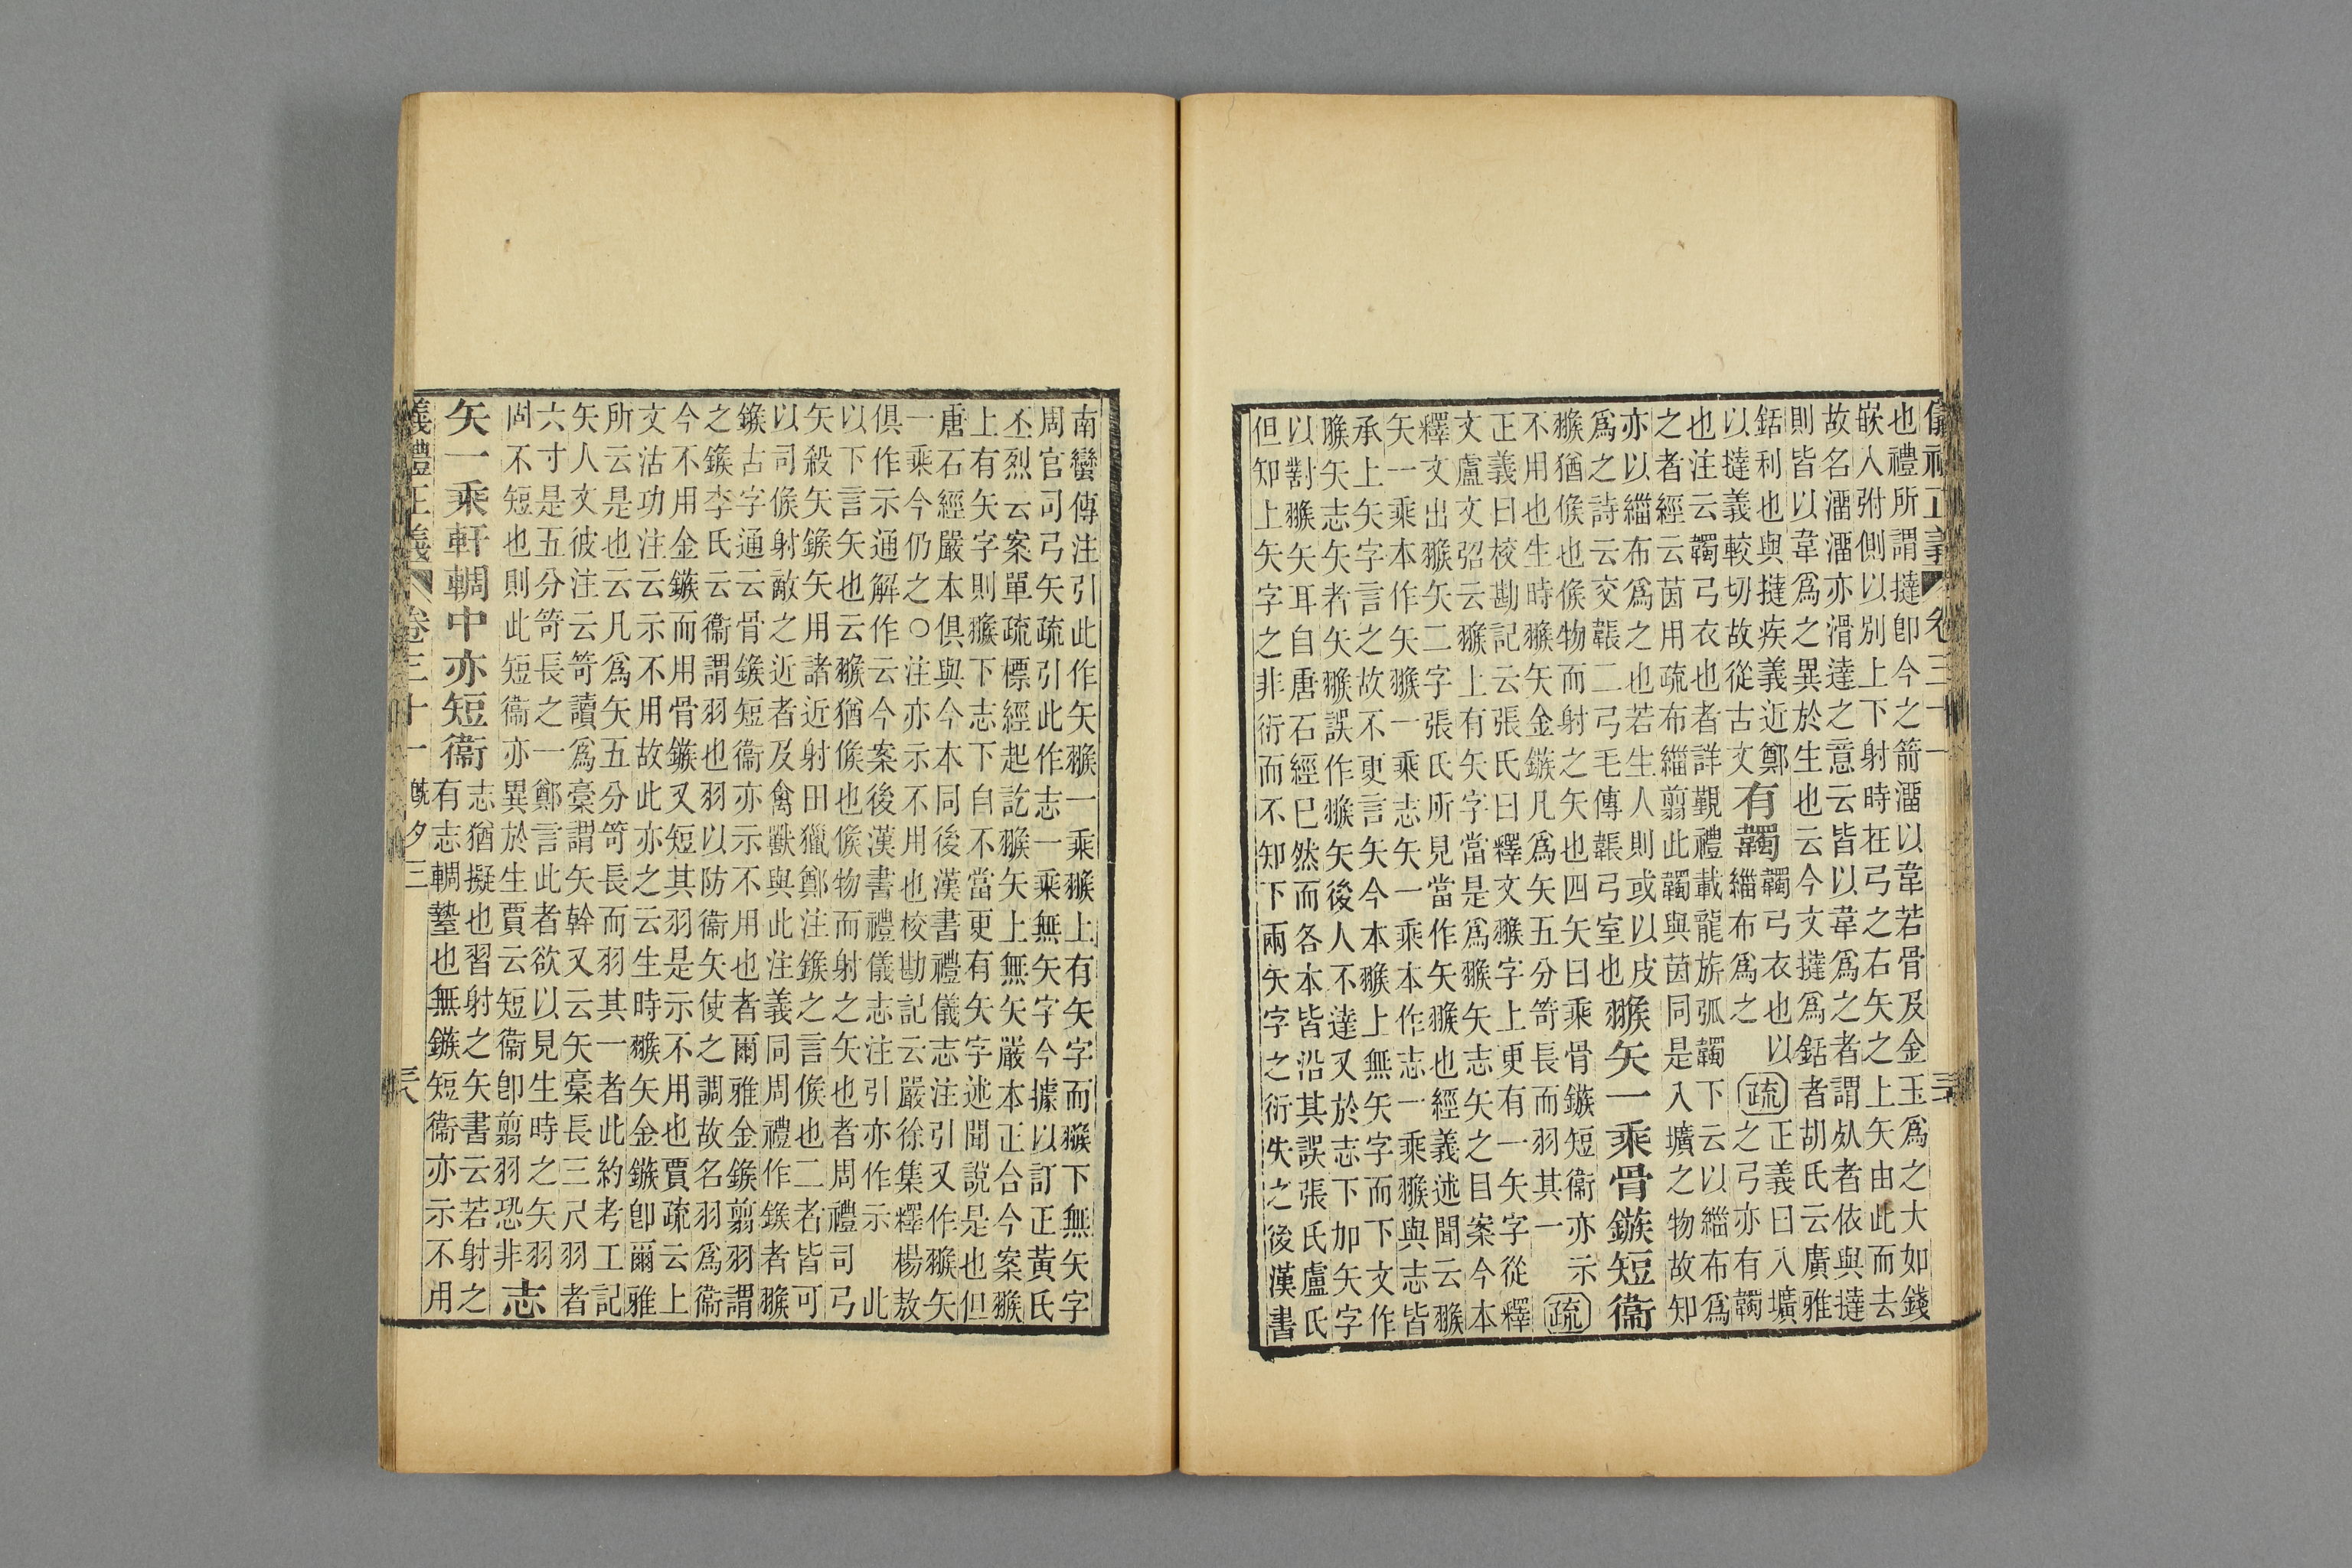 儀禮正義 卷三十一
也禮所謂撻卽今之箭溜以韋若骨及金玉爲之大如錢
嵌入弣側以別上下射時在弓之右矢之上矢由此而去
故名溜溜亦滑達之意云皆以韋爲之者謂者依與撻
則皆以韋爲之異於生也云今文撻爲銛者胡氏云廣雅
銛利也與撻疾義近鄭
以撻義較切故從古文
有韣
韣弓衣也以
緇布爲之
疏
正義曰入壙
之弓亦有韣
也注云韣弓衣也者詳覲禮載龍旂弧韣下云以緇布爲
之者經云茵用疏布緇翦此韣與茵同是入壙之物故知
亦以緇布爲之也若生人則或以皮
爲之詩云交韔二弓毛傳韔弓室也
翭矢一乘骨鏃短衞
翭猶候也候物而射之矢也四矢曰乘骨鏃短衞亦示
不用也生時翭矢金鏃凡爲矢五分笴長而羽其一
疏
正義曰校勘記云張氏曰釋文翭字上更有一矢字從釋
文盧文弨云翭上有矢字當是爲翭矢志矢之目案今本
釋文出翭矢二字張氏所見當作矢翭也經義述聞云翭
矢一乘本作矢翭一乘志矢一乘本作志一乘翭與志皆
承上矢字言之故不更言矢今本翭上無矢字而下文作
翭矢志矢者矢翭誤作翭矢後人不達又於志下加矢字
以對翭矢耳自唐石經已然而各本皆沿其誤張氏盧氏
但知上矢字之非衍而不知下兩矢字之衍失之後漢書
南蠻傳注引此作矢翭一乘翭上有矢字而翭下無矢字
周官司弓矢疏引此作志一乘無矢字今據以訂正黃氏
丕烈云案單疏標經起訖翭矢上無矢嚴本正合今案翭
上有矢字則翭下志下自不當更有矢字述聞說是也但
唐石經嚴本俱與今本同後漢書禮儀志注引又作翭矢
一乘今仍之○注亦示不用也校勘記云嚴徐集釋楊敖
俱作示通解作云今案後漢書禮儀志注引亦作示 此
以下言矢也云翭猶候也候物而射之矢也者周禮司弓
矢殺矢鍭矢用諸近射田獵鄭注鍭之言候也二者皆可
以司候射敵之近者及禽獸與此注義同周禮作鍭者翭
鍭古字通云骨鍭短衞亦示不用也者爾雅金鍭翦羽謂
之鍭李氏云衞謂羽也羽以防衞矢使之調故名羽爲衞
今不用金鏃而用骨鏃又短其羽是示不用也賈疏云上
文沽功注云示不用故此亦之云生時翭矢金鏃卽爾雅
所云是也云凡爲矢五分笴長而羽其一者此約考工記
矢人文彼注云笴讀爲稾謂矢幹又云矢稾長三尺羽者
六寸是五分笴長之一鄭言此者欲以見生時之矢羽
尚不短也則此短衞亦異於生賈云短衞卽翦羽恐非
志
矢一乘軒輖中亦短衞
志猶擬也習射之矢書云若射之
有志輖摯也無鏃短衞亦示不用
儀禮正義 卷三十一 旣夕三